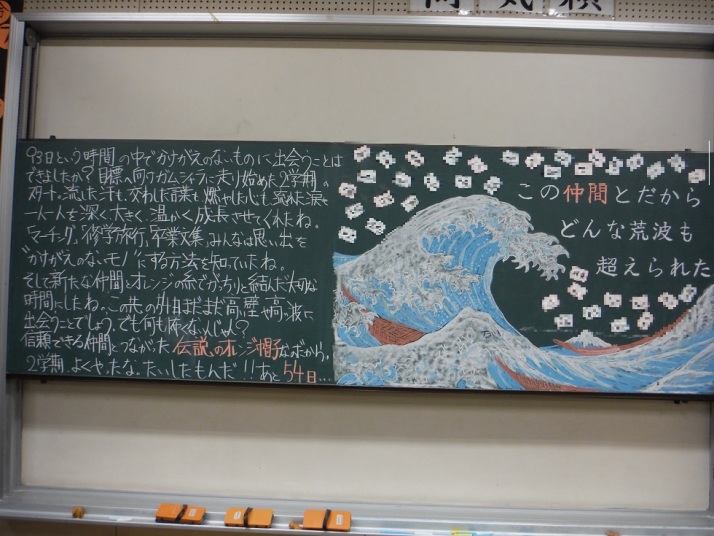 93日という時間の中でかけがえのないものに出会うことは
できましたか？目標へ向けガムシャラに走り始めた2学期の
スタート。流した汗も、交わした言葉も、燃やした心も、流れた涙も
一人一人を深く、大きく、温かく成長させてくれたね。
「マーチング」、「修学旅行」、「卒業文集」。みんなは思い出を
"かけがえのないモノ"にする方法を知っていたね。
そして新たな仲間とオレンジの糸でがっちりと結んだ大切な
時間にしたね。この先の
出会うことでしょう。でも何も怖くないんじゃない？
信頼できる仲間とつながった伝説のオレンジ帽子なのだから。
2学期、よくやったな。たいしたもんだ!!あと54日…
この仲間とだから
どんな荒波も
超えられた